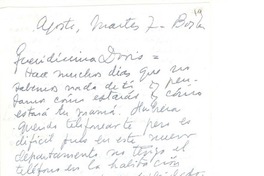 Agosto, Martes 7- Bogotá
Queridísima Doris =
Hace muchos días que no
sabemos nada de ti y pen-
damos como estarás y cómo
estará tu mamá. Hubiera
querido telefonearte pero es
difícil pues en este nuevo
departamento no tengo el
teléfono en la habitación